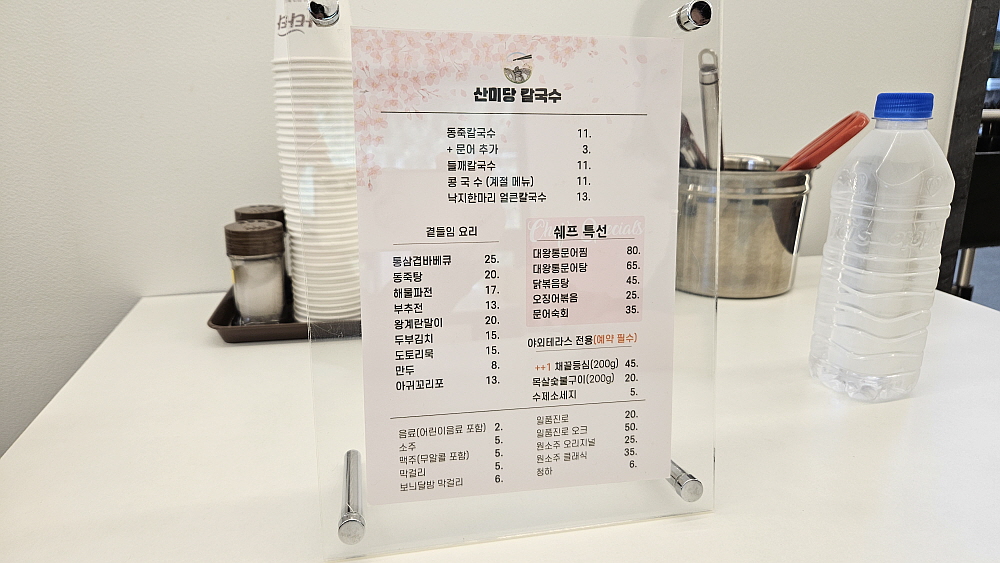 산미당 칼국수
동죽칼국수 11.
+ 문어 추가 3.
들깨칼국수 11.
콩 국 수 (계절 메뉴) 11.
낙지한마리 얼큰칼국수 13.
곁들임 요리
통삼겹바베큐 25.
동죽탕 20.
해물파전 17.
부추전 13.
왕계란말이 20.
두부김치 15.
도토리묵 15.
만두 8.
아귀꼬리포 13.
쉐프 특선
대왕통문어찜 80.
대왕통문어탕 65.
닭볶음탕 45.
오징어볶음 25.
문어숙회 35.
야외테라스 전용(예약 필수)
++1 채끝등심(200g) 45.
목살숯불구이(200g) 20.
수제소세지 5.
음료(어린이음료 포함) 2.
소주 5.
맥주(무알콜 포함) 5.
막걸리 5.
보늬달밤 막걸리 6.
일품진로 20.
일품진로 오크 50.
원소주 오리지널 25.
원소주 클래식 35.
청하 6.